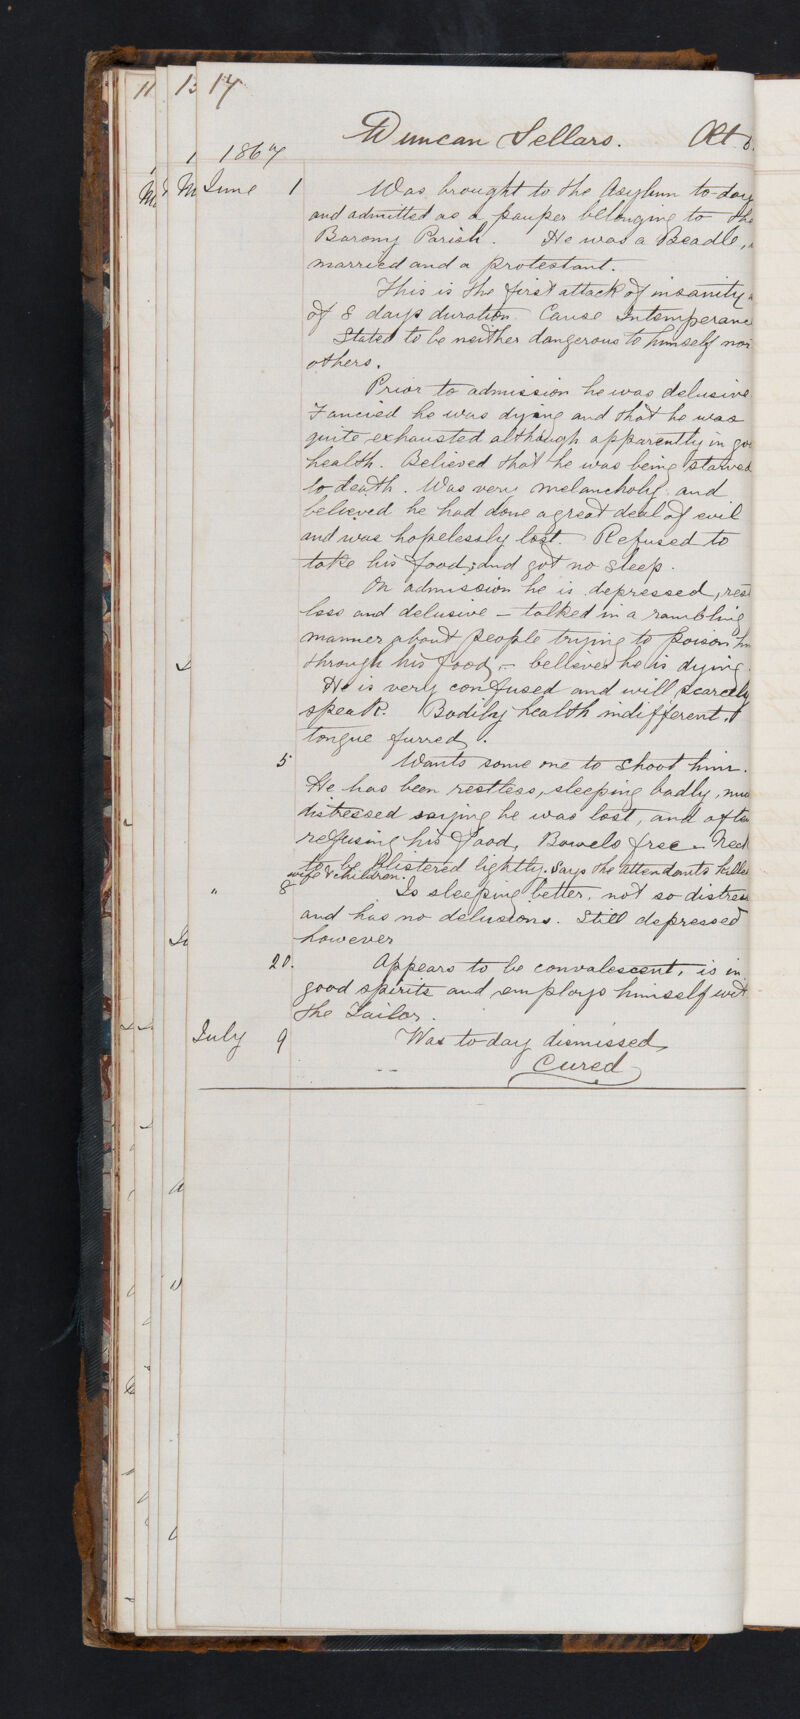 11 13 17
Duncan Sellars. Æt
1867
June 1 Was brought to the Asylum to-day
and admitted as a pauper belonging to the
Barony Parish. He was a Beadle,
married and a protestant.
This is the first attack of insanity
of 8 days duration. Cause Intemperanc
Stated to be neither dangerous to himself nor
others.
Prior to admission he was delusive
Fancied he was dying and that he was
quite exhausted although apparently in goo
health. Believed that he was being starved
to death. Was very melancholy and
believed he had done a great deal of evil
and was hopelessly lost. Refused to
take his food, and got no sleep.
On admission he is depressed, rest
less and delusive – talked in a rambling
manner about people trying to poison him
through his food, – believes he is dying.
He is very confused and will scarcely
speak. Bodily health indifferent.
tongue furred.
5 Wants some one to shoot him.
He has been restless, sleeping badly, muc
distressed saying he was lost, and often
refusing his food, Bowels free – Neck
to be blistered lightly. Says the attendants killed
wife & children.
" 8 Is sleeping better, not so distress
and has no delusions. Still depressed
however
20. Appears to be convalescent, is in
good spirits and employs himself wit
the Tailor.
July 9 Was to-day dismissed
Cured